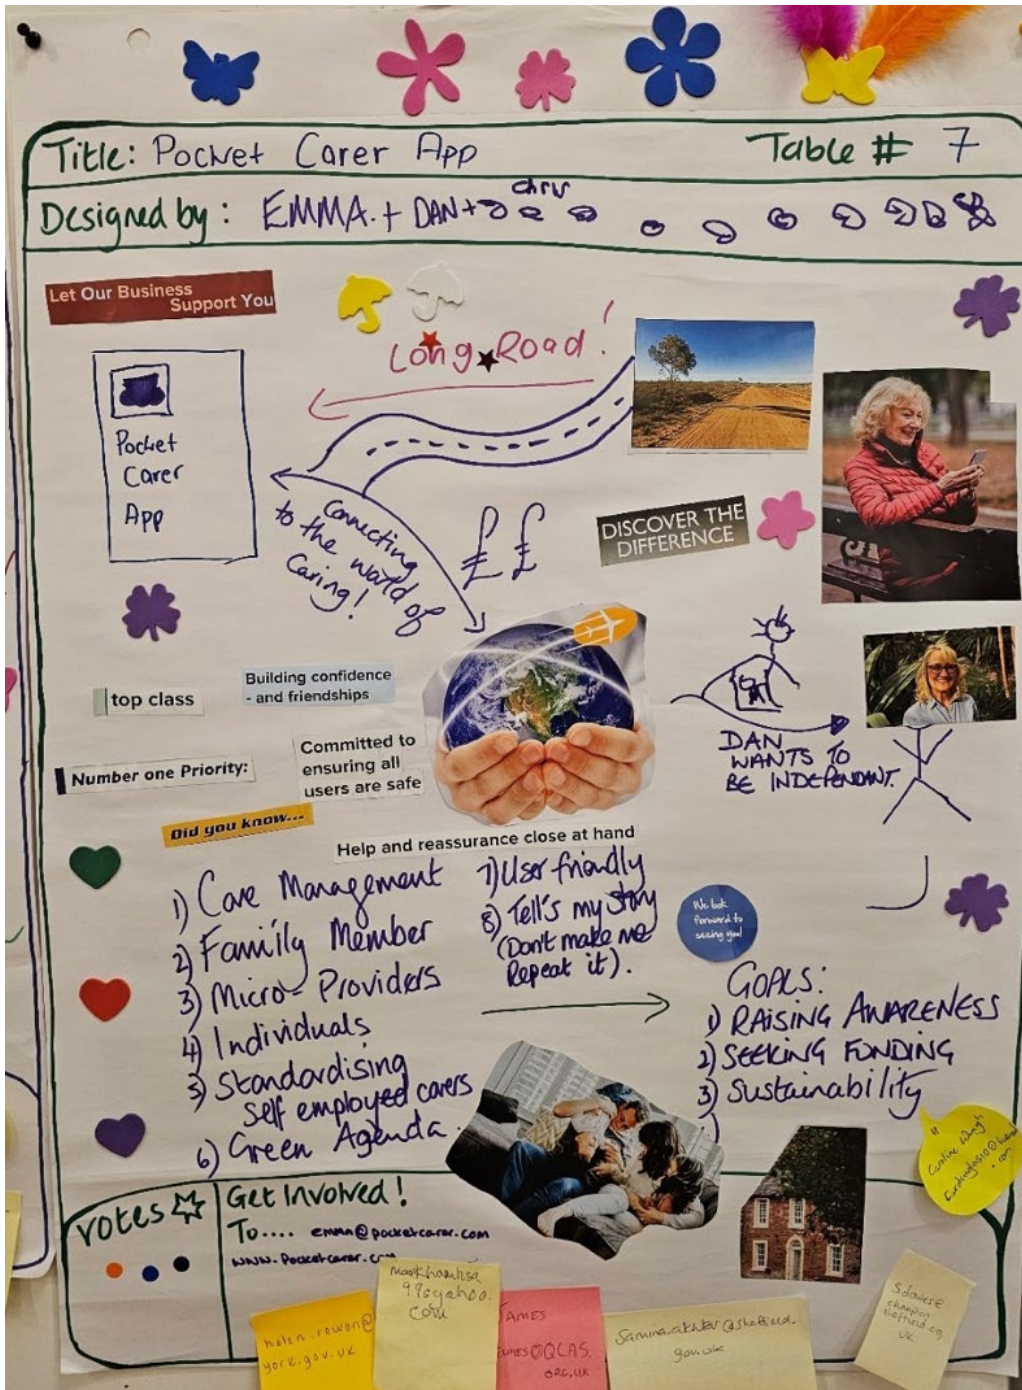 Title: Pocket Carer App
Table # 7
Designed by: EMMA. + DAN +
Chris
Let Our Business
Support You
Long Road!
Pocket
Carer
App
Connecting
to the world of
Caring!
££
DISCOVER THE
DIFFERENCE
top class
Building confidence
- and friendships
Number one Priority:
Committed to
ensuring all
users are safe
DAN
WANTS TO
BE INDEPENDANT.
Did you know...
Help and reassurance close at hand
1) Care Management
2) Family Member
3) Micro-Providers
4) Individuals
5) Standardising
Self employed carers
6) Green Agenda.
7) User friendly
8) Tell's my story
(Don't make me
Repeat it).
We look
forward to
seeing you!
GOALS:
1) RAISING AWARENESS
2) SEEKING FUNDING
3) Sustainability
)
Caroline
votes
Get Involved!
To.... emma@pocketcarer.com
www.Pocketcarer.
helen.rowan@
york.gov.uk
99@yahoo.
com
JAMES
@QLAS.
ORG.UK
Samina.akhter@sheffield.
gov.uk
UK